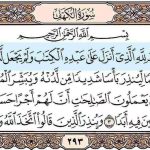 سُورَةُ الكَهْفِ
بِسْمِ اللَّهِ الرَّحْمَٰنِ الرَّحِيمِ
لِلَّهِ الَّذِي أَنزَلَ عَلَىٰ عَبْدِهِ الْكِتَٰبَ وَلَمْ يَجْعَل
لِّيُنذِرَ بَأْسًا شَدِيدًا مِّن لَّدُنْهُ وَيُبَشِّرَ
يَعْمَلُونَ الصَّٰلِحَٰتِ أَنَّ لَهُمْ أَجْرًا
فِيهِ أَبَدًا ٣ وَيُنذِرَ الَّذِينَ قَالُوا اتَّخَذَ اللَّهُ
٢٩٣